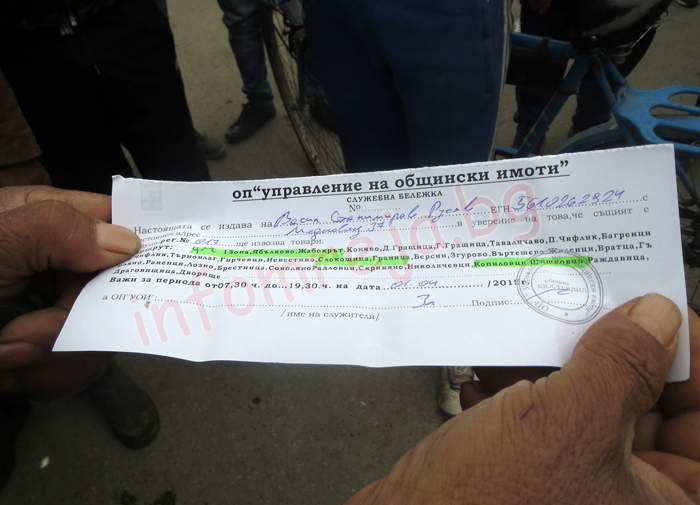 оп“управление на общински имоти”
СЛУЖЕБНА БЕЛЕЖКА
№
Настоящата се издава на Васил ЕГН с
постоянен адрес в уверение на това,че същият с
рег.№ ще извозва товари.
1Зона,Ябълково,Жабокрът,Коняво,Д.Гращица,Г.Гращица,Таваличаво,П.Чифлик,Багренци
чифлик,Търновлаг,Гърчевци,Невестино,Слокощица,Граница,Берсин,Згурово,Въртешево,Жиленци,Вратца,Гъ
Раненци,Лозно,Брестино,Соволяно,Радловци,Скриняно,Николичевци,Копиловци,Шишковци,Раждавица,
Драговищица,Дворище
Важи за периода от07,30 ч. до...19,30.ч. на дата 01.04 /2015
а ОП"УОИ" Подпис:
/име на служителя/
КЮСТЕНДИЛ
infomreja.bg